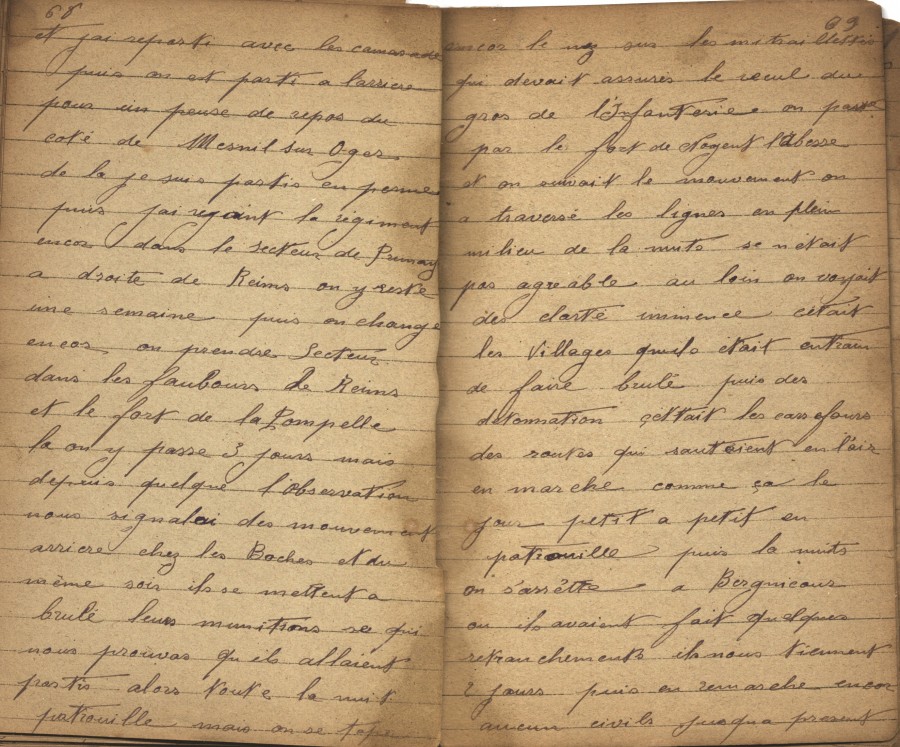 68
et jai reparti avec les camarade
puis on est parti a larriere
pour un peuse de repos du
coté de Mesnil sur Oger
de la je suis partis en perme
puis jai rejoint la régiment
encor dans le secteur de Prunay
a droite de Reims on y reste
une semaine puis on change
encor on prendre Secteur
dans les faubours de Reims
et le fort de la Pompelle
la on y passe 3 jours mais
depuis quelque l'Observation
nous signalai des mouvement
arriere chez les Boches et du
même soir ils se mettent a
brulé leurs munitions se qui
nous prouvas quils allaient
partis alors toute la nuit
patrouille mais on se tape
69
encor le nez sur les mitraillettes
qui devait assurés le recul du
gros de l'Infanterie on passe
par le fort de Nogent l'Abesse
et on suivait le mouvement on
a traversé les lignes en plein
milieu de la nuits se nétait
pas agreable au loin on voyait
des clarté immence cétait
les Villages quils etait entrain
de faire brulé puis des
détonnation çettait les carrefours
des routes qui sautaient en l'air
en marche comme ça le
jour petit a petit en
patrouille puis la nuits
on s'arrêtte a Bergnicour
ou ils avaient fait quelques
retranchements ils nous tiennent
2 jours puis en remarche encor
aucun civils jusqua present